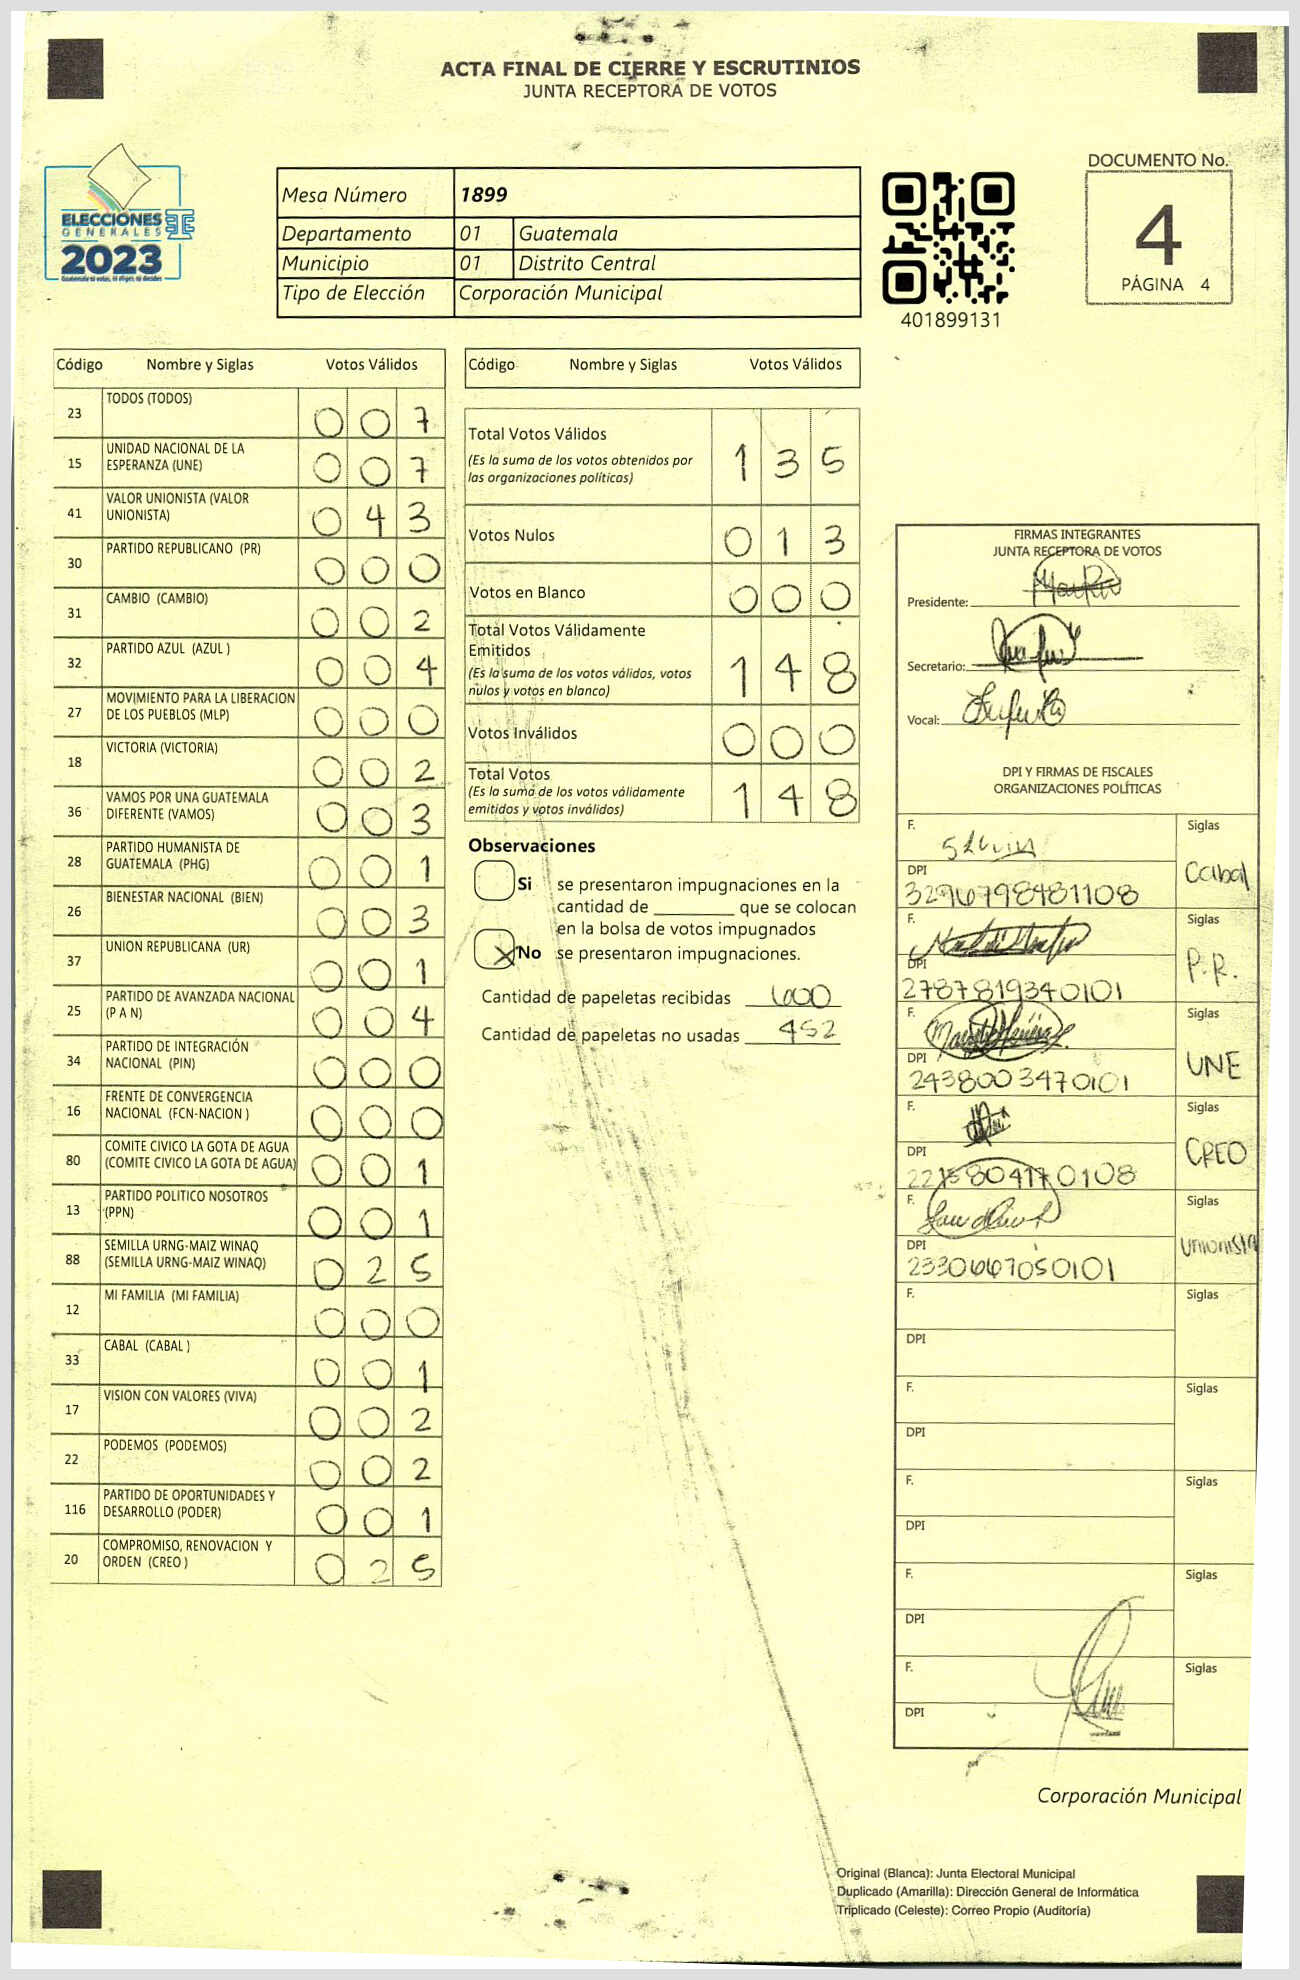 ACTA FINAL DE CIERRE Y ESCRUTINIOS
JUNTA RECEPTORA DE VOTOS
ELECCIONES
GENERALES
2023
Mesa Número 1899
Departamento 01 Guatemala
Municipio 01 Distrito Central
Tipo de Elección Corporación Municipal
401899131
DOCUMENTO No.
4
PÁGINA 4
Código Nombre y Siglas Votos Válidos
23 TODOS (TODOS) 0 0 7
15 UNIDAD NACIONAL DE LA
ESPERANZA (UNE) 0 0 7
41 VALOR UNIONISTA (VALOR
UNIONISTA) 0 4 3
30 PARTIDO REPUBLICANO (PR) 0 0 0
31 CAMBIO (CAMBIO) 0 0 2
32 PARTIDO AZUL (AZUL ) 0 0 4
27 MOVIMIENTO PARA LA LIBERACION
DE LOS PUEBLOS (MLP) 0 0 0
18 VICTORIA (VICTORIA) 0 0 2
36 VAMOS POR UNA GUATEMALA
DIFERENTE (VAMOS) 0 0 3
28 PARTIDO HUMANISTA DE
GUATEMALA (PHG) 0 0 1
26 BIENESTAR NACIONAL (BIEN) 0 0 3
37 UNION REPUBLICANA (UR) 0 0 1
25 PARTIDO DE AVANZADA NACIONAL
(P A N) 0 0 4
34 PARTIDO DE INTEGRACIÓN
NACIONAL (PIN) 0 0 0
16 FRENTE DE CONVERGENCIA
NACIONAL (FCN-NACION ) 0 0 0
80 COMITE CIVICO LA GOTA DE AGUA
(COMITE CIVICO LA GOTA DE AGUA) 0 0 1
13 PARTIDO POLITICO NOSOTROS
(PPN) 0 0 1
88 SEMILLA URNG-MAIZ WINAQ
(SEMILLA URNG-MAIZ WINAQ) 0 2 5
12 MI FAMILIA (MI FAMILIA) 0 0 0
33 CABAL (CABAL ) 0 0 1
17 VISION CON VALORES (VIVA) 0 0 2
22 PODEMOS (PODEMOS) 0 0 2
116 PARTIDO DE OPORTUNIDADES Y
DESARROLLO (PODER) 0 0 1
20 COMPROMISO, RENOVACION Y
ORDEN (CREO ) 0 2 5
Código Nombre y Siglas Votos Válidos
Total Votos Válidos 1 3 5
(Es la suma de los votos obtenidos por
las organizaciones políticas)
Votos Nulos 0 1 3
Votos en Blanco 0 0 0
Total Votos Válidamente
Emitidos 1 4 8
(Es la suma de los votos válidos, votos
nulos y votos en blanco)
Votos Inválidos 0 0 0
Total Votos 1 4 8
(Es la suma de los votos válidamente
emitidos y votos inválidos)
Observaciones
Si se presentaron impugnaciones en la
cantidad de ________ que se colocan
en la bolsa de votos impugnados
X No se presentaron impugnaciones.
Cantidad de papeletas recibidas 600
Cantidad de papeletas no usadas 452
FIRMAS INTEGRANTES
JUNTA RECEPTORA DE VOTOS
Presidente:
Secretario:
Vocal:
DPI Y FIRMAS DE FISCALES
ORGANIZACIONES POLÍTICAS
F. Siglas
DPI Cabal
3296798481108
F. Siglas
DPI P.R.
2787819340101
F. Siglas
DPI UNE
2438003470101
F. Siglas
DPI CREO
2215804170108
F. Siglas
DPI Unionista
2330667050101
F. Siglas
DPI
F. Siglas
DPI
F. Siglas
DPI
F. Siglas
DPI
F. Siglas
DPI
Corporación Municipal
Original (Blanca): Junta Electoral Municipal
Duplicado (Amarilla): Dirección General de Informática
Triplicado (Celeste): Correo Propio (Auditoría)